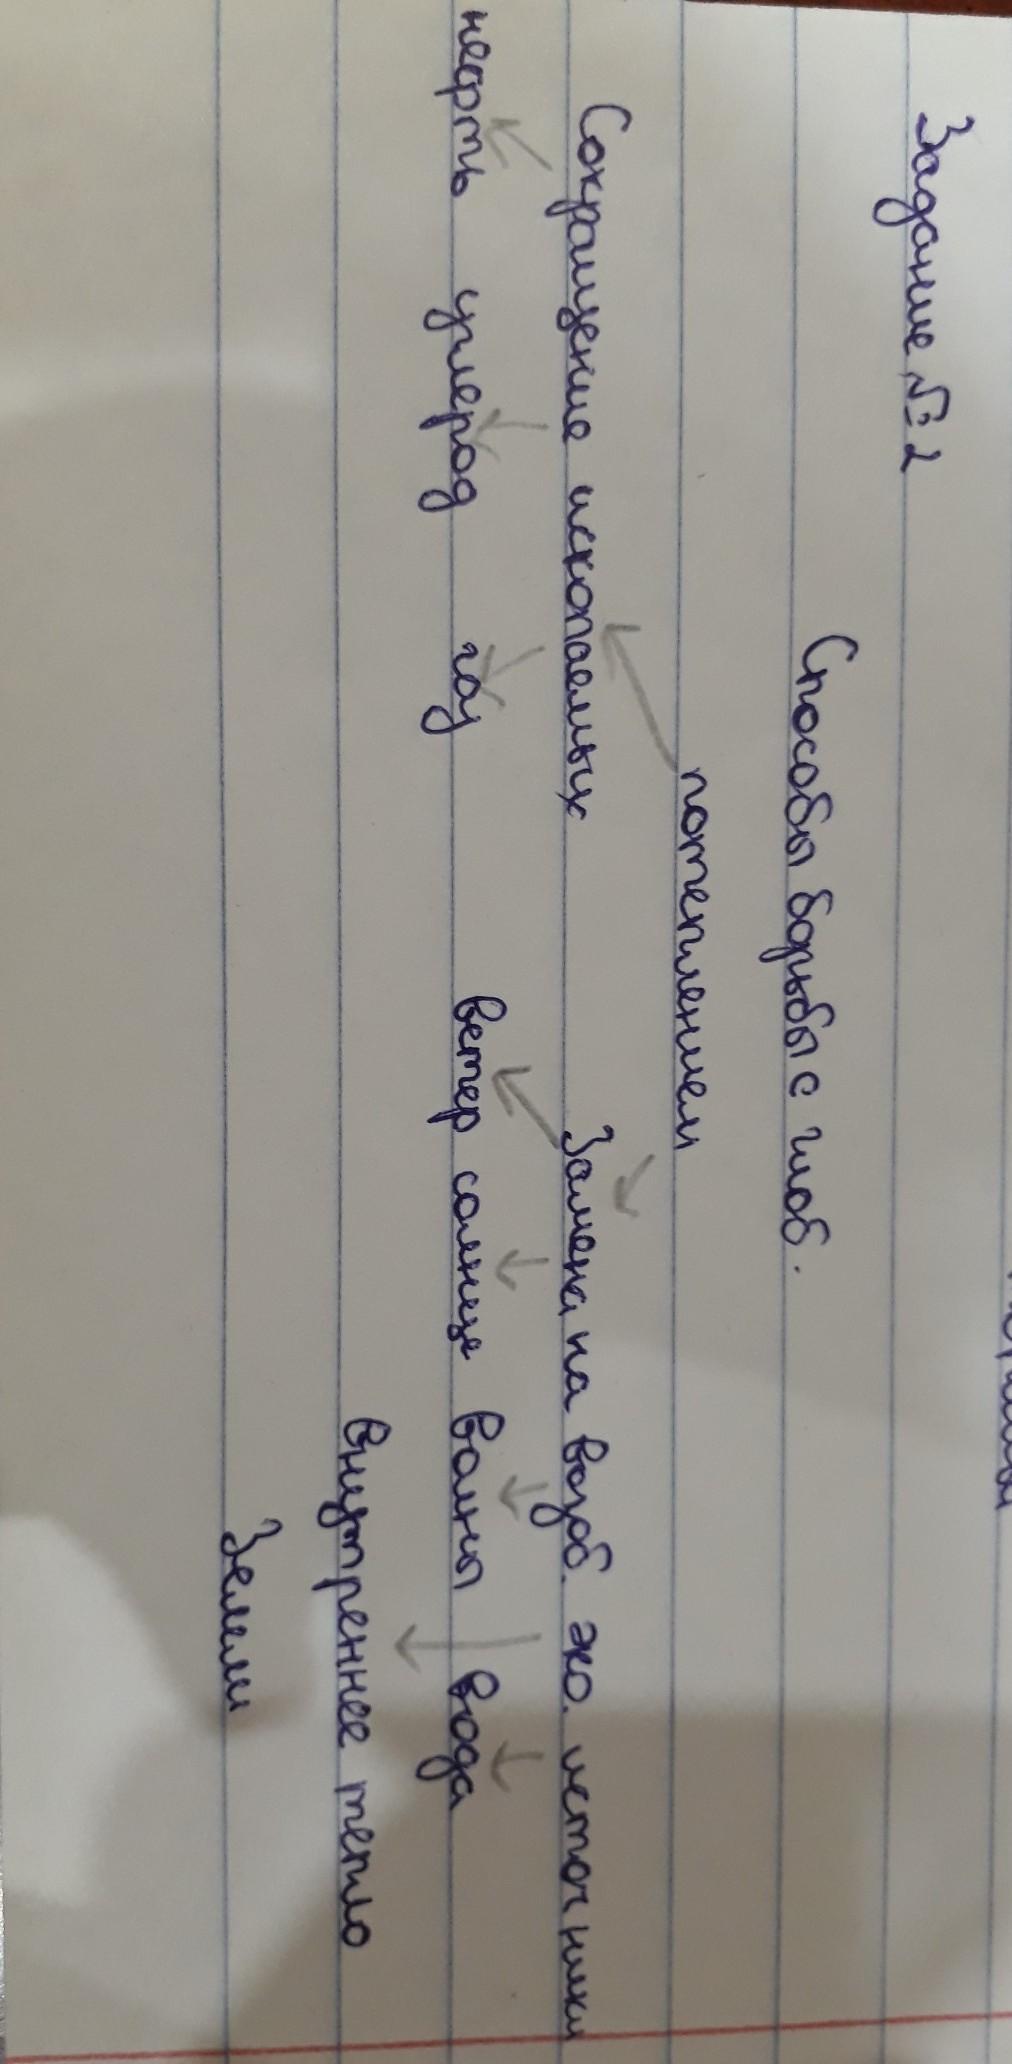 Задание №2
Способы борьбы с глоб.
потеплением
Сокращение ископаемых Замена на возоб. эко. источники
нефть углерод газ ветер солнце волны вода
внутреннее тепло
Земли